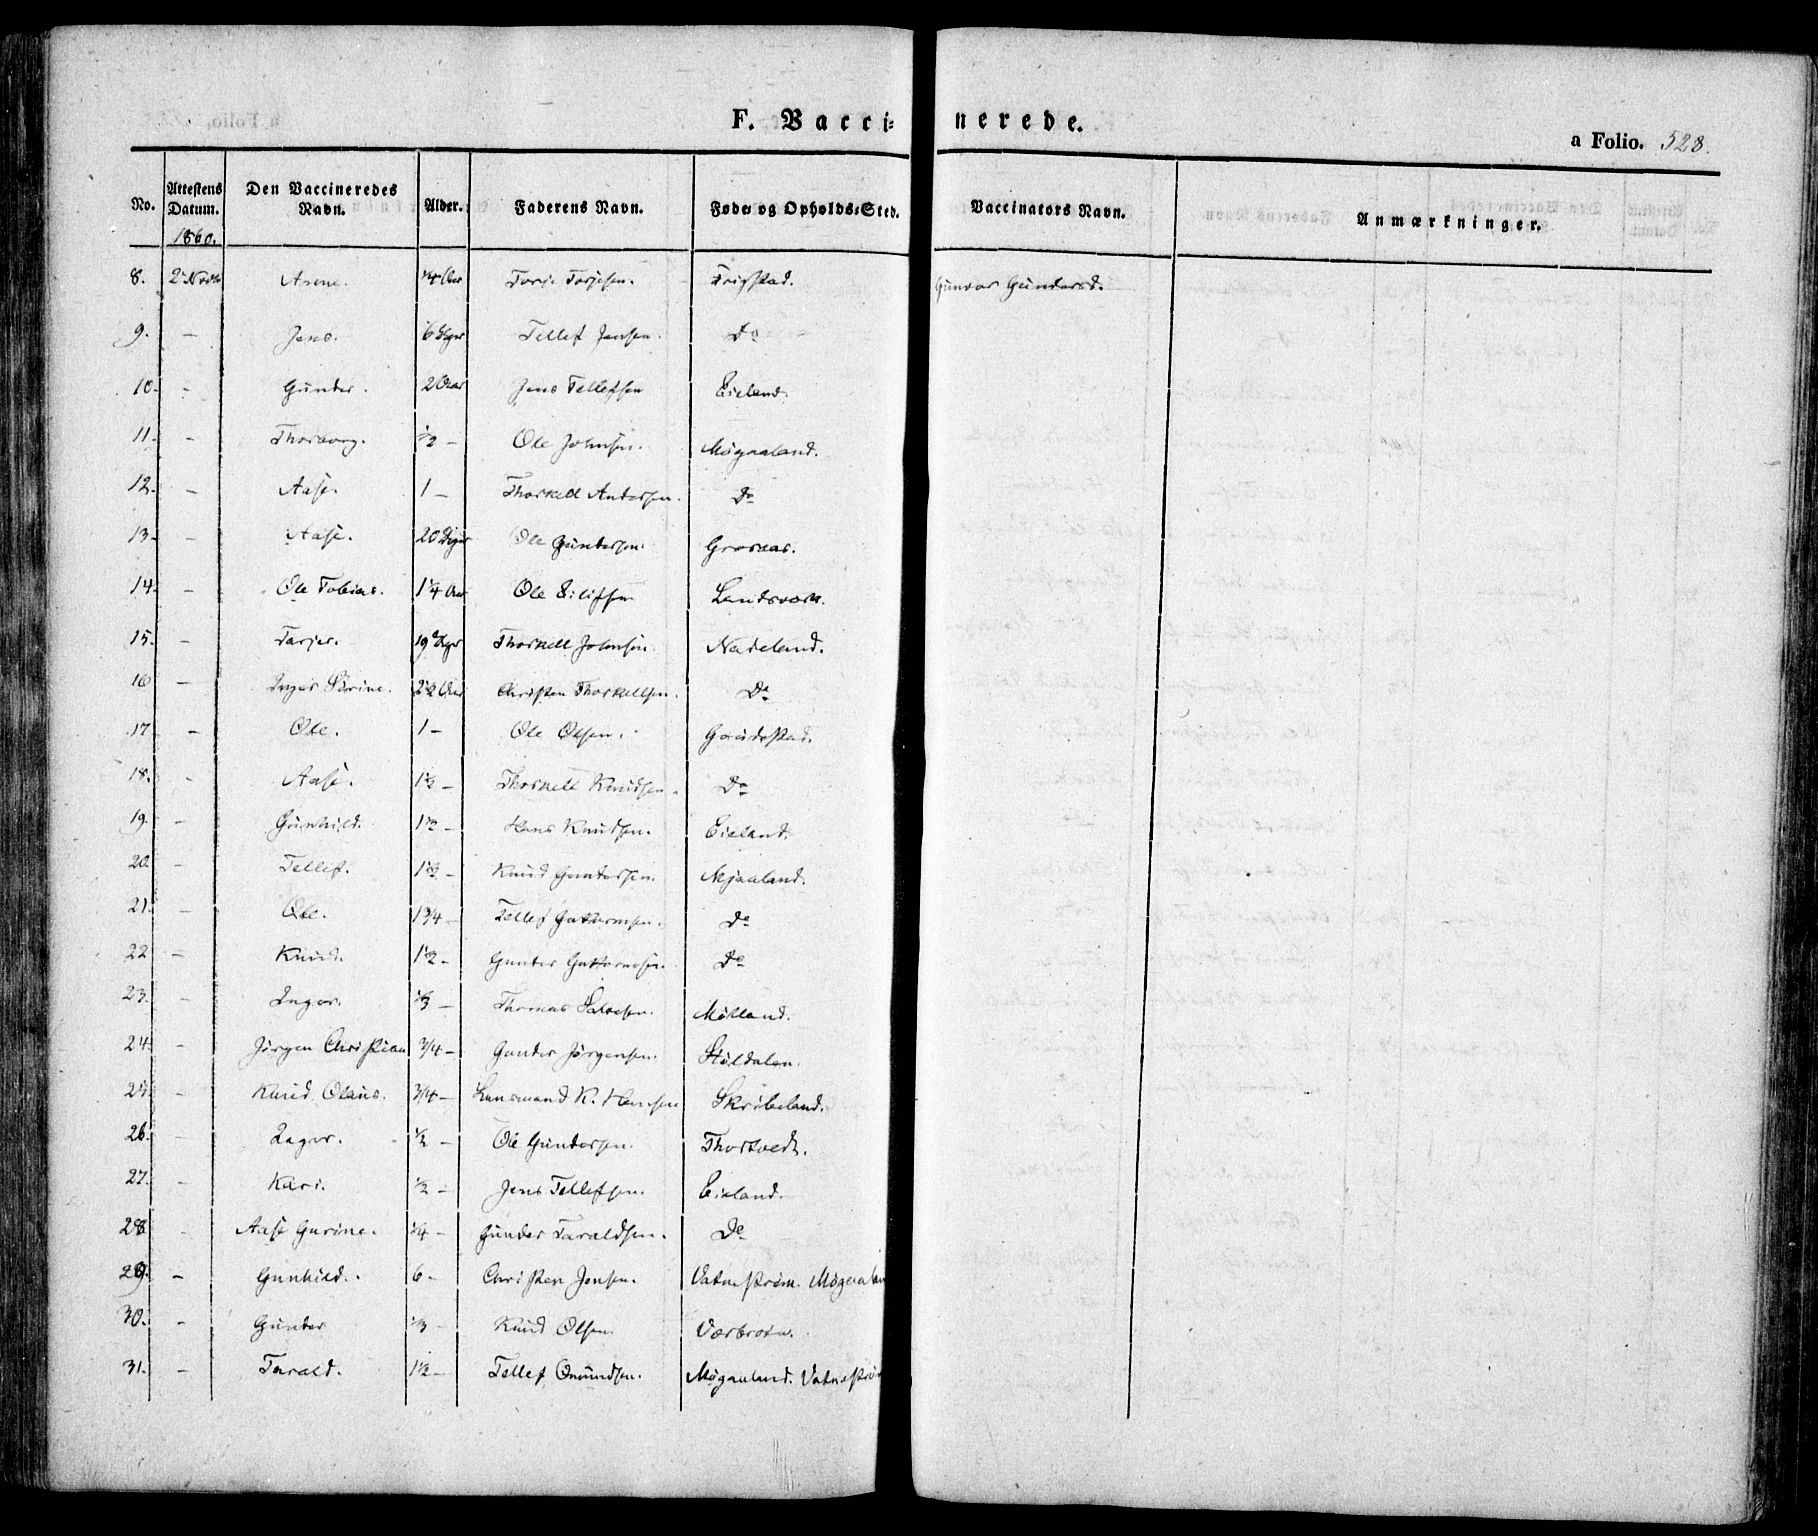 F. Vaccinerede.
a Folio. 528.
No. Attestens Datum. Den Vaccineredes Navn. Alder. Faderens Navn. Føde- og Opholds-Sted. Vaccinators Navn. Anmærkninger.
1860.
8. 2 Novbr Anne. 1/4 Aar Torje Torjesen. Gunvor Gundersd.
9. - Jens. 6 Uger Tellef Jensen. Do
10. - Gunder. 2 Aar Jens Tellefsen Eieland.
11. - Thorborg. 1/2 - Ole Johnsen. Møgaaland.
12. - Aase. 1 - Thorkell Andersen. Do
13. - Aase. 20 Uger Ole Gundersen. Grosaas.
14. - Ole Tobias. 1 1/4 Aar Ole Eilifsen Landsverk.
15. - Tarjer. 19 Uger Thorkell Johnsen. Nadeland.
16 - Inger Sørine. 2 1/2 Aar Christen Thorkellsen. Do
17 - Ole. 1 - Ole Olsen.
18. - Aase. 1 1/2 - Thorkell Knudsen. Do
19. - Gunhild. 1 1/2 - Hans Knudsen. Eieland.
20. - Tellef. 1 1/2 - Knud Gundersen. Mjaaland.
21. - Ole. 1 3/4 - Tellef Guttormsen. Do
22 - Knud. 1 1/2 - Gunder Guttormsen. Do
23. - Inger. 1/3 - Thomas Salvesen. Mølland.
24. - Jørgen Christian 3/4 - Gunder Jørgensen. Støldalen.
25. - Knud Olaus. 3/4 - Lensmand K. Hansen Skribeland.
26. - Inger. 1/2 - Ole Gundersen. Thortvedt.
27. - Kari. 1/2 - Jens Tellefsen. Eieland.
28 - Aase Gurine. 1/4 - Gunder Taraldsen. Do
29. - Gunhild. 6 - Christen Jensen. Vatnestrøm. Møgaalan
30. - Gunder 1/3 - Knud Olsen.
31. - Tarald. 1 1/2 - Tellef Omundsen. Møgaaland. Vatnestrøm